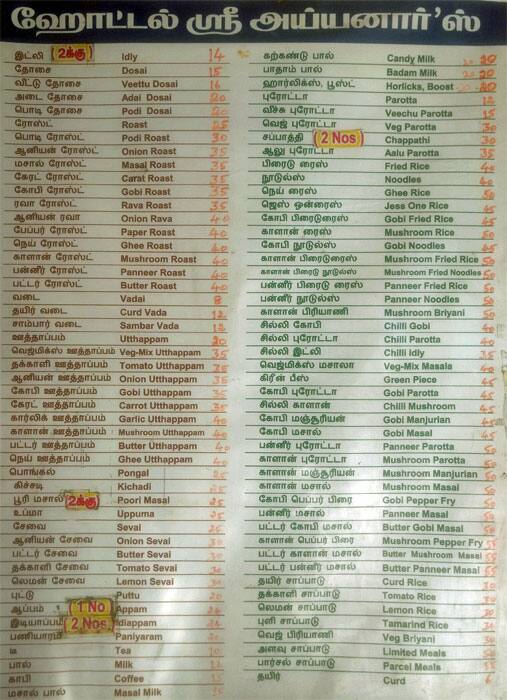 ஹோட்டல் ஸ்ரீ அய்யனார்'ஸ்
இட்லி 2க்கு Idly 14
தோசை Dosai 15
வீட்டு தோசை Veettu Dosai 16
அடை தோசை Adai Dosai 20
பொடி தோசை Podi Dosai 20
ரோஸ்ட் Roast 25
பொடி ரோஸ்ட் Podi Roast 30
ஆனியன் ரோஸ்ட் Onion Roast 35
மசால் ரோஸ்ட் Masal Roast 35
கேரட் ரோஸ்ட் Carat Roast 35
கோபி ரோஸ்ட் Gobi Roast 35
ரவா ரோஸ்ட் Rava Roast 35
ஆனியன் ரவா Onion Rava 40
பேப்பர் ரோஸ்ட் Paper Roast 40
நெய் ரோஸ்ட் Ghee Roast 40
காளான் ரோஸ்ட் Mushroom Roast 40
பன்னீர் ரோஸ்ட் Panneer Roast 40
பட்டர் ரோஸ்ட் Butter Roast 40
வடை Vadai 8
தயிர் வடை Curd Vada 12
சாம்பார் வடை Sambar Vada 12
ஊத்தாப்பம் Utthappam 20
வெஜ்மிக்ஸ் ஊத்தாப்பம் Veg-Mix Utthappam 35
தக்காளி ஊத்தாப்பம் Tomato Utthappam 35
ஆனியன் ஊத்தாப்பம் Onion Utthappam 35
கோபி ஊத்தாப்பம் Gobi Utthappam 35
கேரட் ஊத்தாப்பம் Carrot Utthappam 35
கார்லிக் ஊத்தாப்பம் Garlic Utthappam 40
காளான் ஊத்தாப்பம் Mushroom Utthappam 40
பட்டர் ஊத்தாப்பம் Butter Utthappam 40
நெய் ஊத்தாப்பம் Ghee Utthappam 40
பொங்கல் Pongal 25
கிச்சடி Kichadi 25
பூரி மசால் 2க்கு Poori Masal 25
உப்மா Uppuma 25
சேவை Sevai 25
ஆனியன் சேவை Onion Sevai 30
பட்டர் சேவை Butter Sevai 30
தக்காளி சேவை Tomato Sevai 30
லெமன் சேவை Lemon Sevai 30
புட்டு Puttu 20
ஆப்பம் 1 No Appam
இடியாப்பம் 2 Nos Idiappam
பணியாரம் Paniyaram
டீ Tea 10
பால் Milk 12
காபி Coffee 15
மசாலா பால் Masal Milk 15
கற்கண்டு பால் Candy Milk 20
பாதாம் பால் Badam Milk 20
ஹார்லிக்ஸ், பூஸ்ட் Horlicks, Boost 20
புரோட்டா Parotta 12
வீச்சு புரோட்டா Veechu Parotta 15
வெஜ் புரோட்டா Veg Parotta 30
சப்பாத்தி 2 Nos Chappathi 30
ஆலு புரோட்டா Aalu Parotta 35
பிரைடு ரைஸ் Fried Rice 40
நூடுல்ஸ் Noodles 40
நெய் ரைஸ் Ghee Rice 50
ஜெஸ் ஒன்ரைஸ் Jess One Rice 45
கோபி பிரைடுரைஸ் Gobi Fried Rice 45
காளான் ரைஸ் Mushroom Rice 50
கோபி நூடுல்ஸ் Gobi Noodles 45
காளான் பிரைடுரைஸ் Mushroom Fried Rice 50
காளான் பிரைடு நூடுல்ஸ் Mushroom Fried Noodles 50
பன்னீர் பிரைடு ரைஸ் Panneer Fried Rice 50
பன்னீர் நூடுல்ஸ் Panneer Noodles 50
காளான் பிரியாணி Mushroom Briyani 50
சில்லி கோபி Chilli Gobi 40
சில்லி புரோட்டா Chilli Parotta 40
சில்லி இட்லி Chilli Idly 35
வெஜ்மிக்ஸ் மசாலா Veg-Mix Masala 40
கிரீன் பீஸ் Green Piece 45
கோபி புரோட்டா Gobi Parotta 45
சில்லி காளான் Chilli Mushroom 45
கோபி மஞ்சூரியன் Gobi Manjurian 45
கோபி மசால் Gobi Masal 45
பன்னீர் புரோட்டா Panneer Parotta 50
காளான் புரோட்டா Mushroom Parotta 50
காளான் மஞ்சூரியன் Mushroom Manjurian 50
காளான் மசால் Mushroom Masal 50
கோபி பெப்பர் பிரை Gobi Pepper Fry 50
பன்னீர் மசால் Panneer Masal 50
பட்டர் கோபி மசால் Butter Gobi Masal 50
காளான் பெப்பர் பிரை Mushroom Pepper Fry 55
பட்டர் காளான் மசால் Butter Mushroom Masal 55
பட்டர் பன்னீர் மசால் Butter Panneer Masal 55
தயிர் சாப்பாடு Curd Rice 30
தக்காளி சாப்பாடு Tomato Rice 30
லெமன் சாப்பாடு Lemon Rice 30
புளி சாப்பாடு Tamarind Rice 30
வெஜ் பிரியாணி Veg Briyani 30
அளவு சாப்பாடு Limited Meals 50
பார்சல் சாப்பாடு Parcel Meals
தயிர் Curd 6